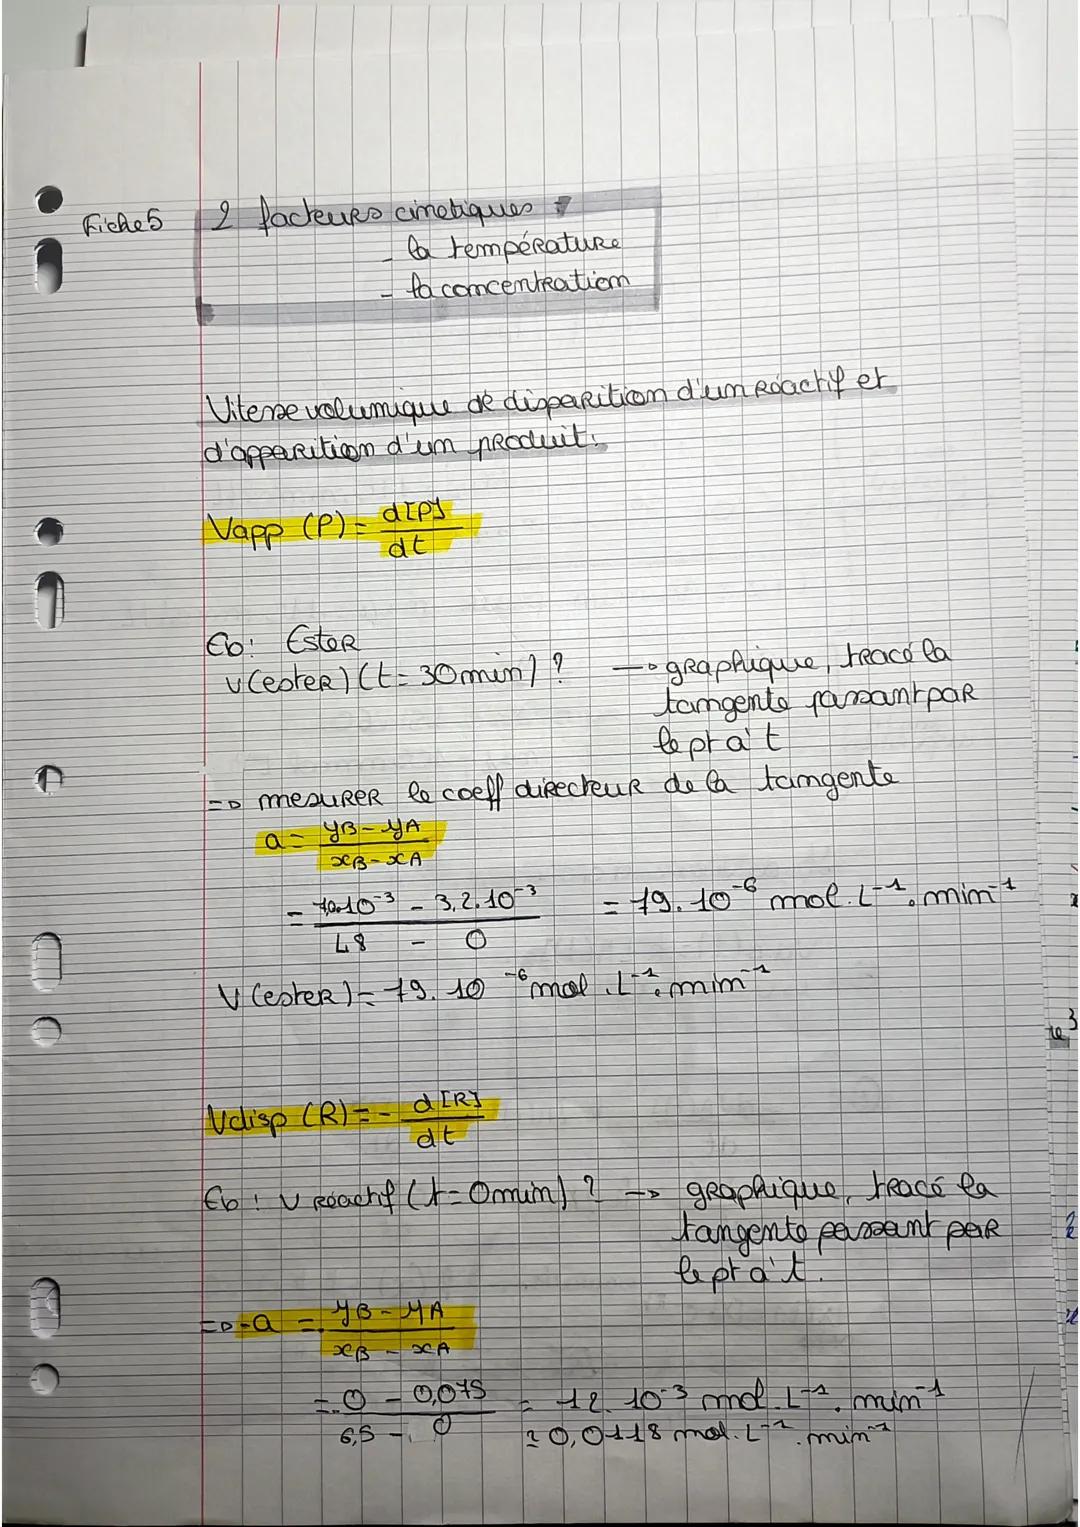 Fiche 5
2 facteurs cinétiques :
- la température
- la concentration
Vitesse volumique de disparition d'un réactif et
d'apparition d'un produit.
Vapp (P) = d[P]
dt
Ex: Ester
v(ester)(t = 30min) ? → graphique, tracé la
tangente passant par
le pt à t
=> mesurer le coeff directeur de la tangente
a = yB - yA
xB - xA
= 7,0.10⁻³ - 3,2.10⁻³ = 79.10⁻⁶ mol.L⁻¹.min⁻¹
48 - 0
V(ester) = 79.10⁻⁶ mol.L⁻¹.min⁻¹
Vdisp (R) = - d[R]
dt
Ex: v réactif (t = 0min) ? → graphique, tracé la
tangente passant par
le pt à t.
=> -a = - yB - yA
xB - xA
= - 0 - 0,075 = 12.10⁻³ mol.L⁻¹.min⁻¹
6,5 - 0 = 0,0118 mol.L⁻¹.min⁻¹